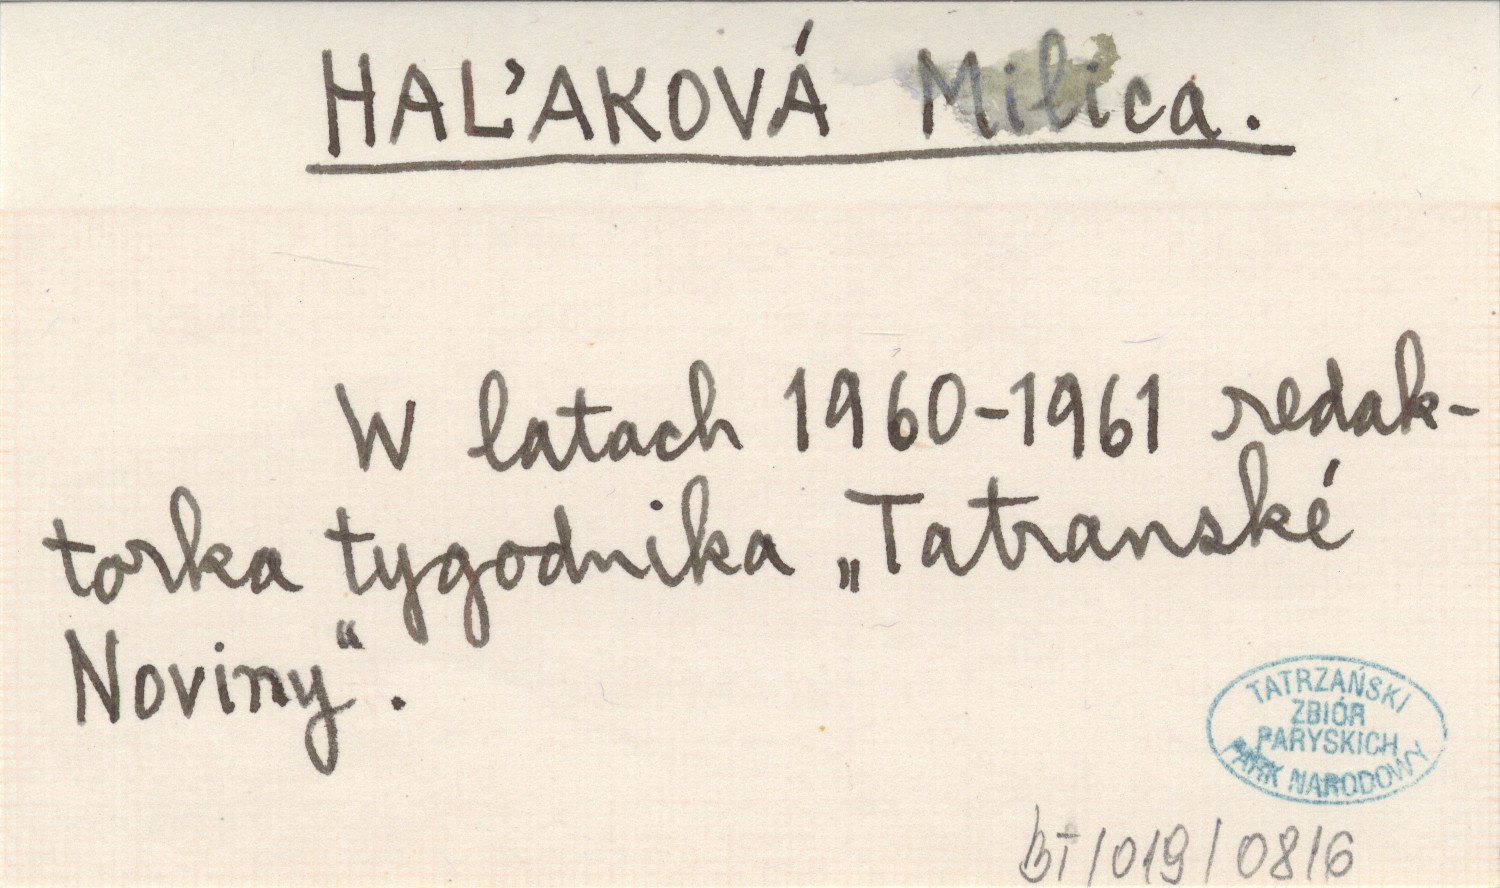 HAĽAKOVÁ Milica.
W latach 1960-1961 redak-
torka tygodnika „Tatranské
Noviny“.
TATRZAŃSKI
ZBIÓR
PARYSKICH
PARK NARODOWY
BT/019/0816